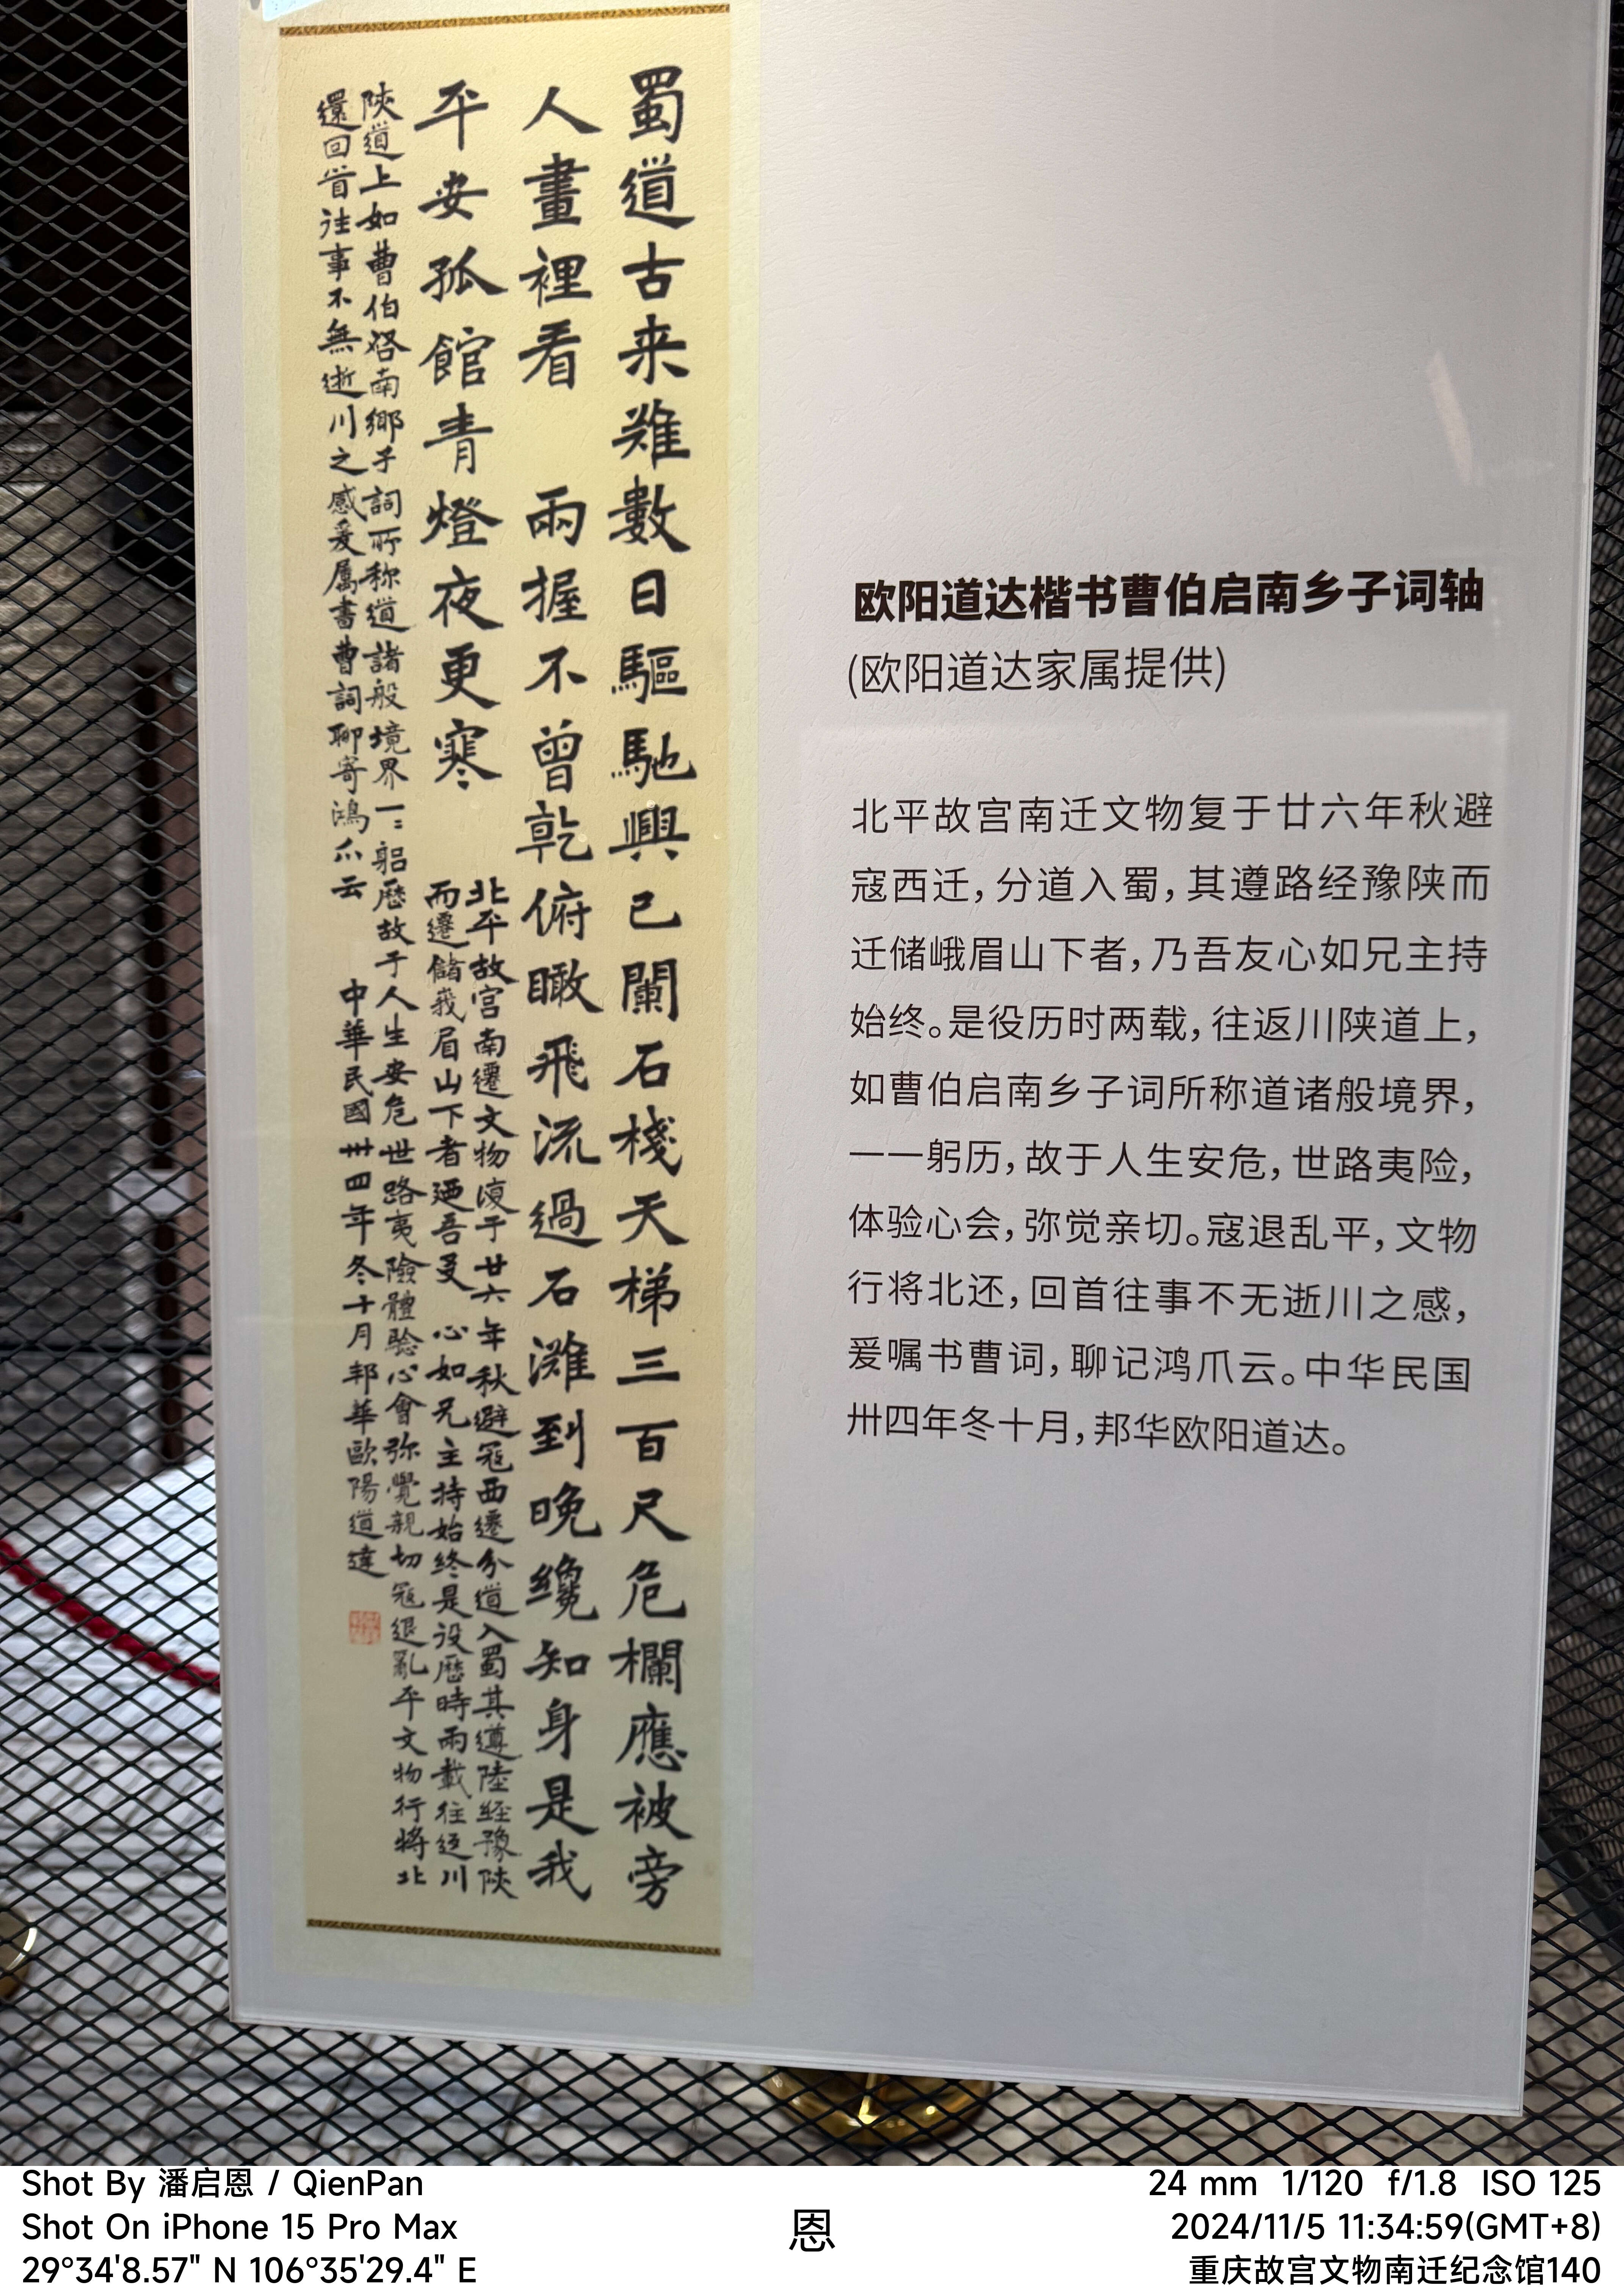 蜀道古来難數日驅馳興已闌石棧天梯三百尺危欄應被旁
人畫裡看 兩握不曾乾俯瞰飛流過石灘到晚纔知身是我
平安孤館青燈夜更寒
北平故宫南遷文物復于廿六年秋避寇西遷分道入蜀其遵陸經豫陝
而遷儲峩眉山下者廼吾友 心如兄主持始終是役歷時兩載往返川
陝道上如曹伯啓南鄉子詞所称道諸般境界一二躬歷故于人生安危世路夷險體驗心會弥覺親切寇退亂平文物行將北
還回首往事不無逝川之感爰属書曹詞聊寄鴻爪云 中華民國卅四年冬十月邦華歐陽道達
欧阳道达楷书曹伯启南乡子词轴
(欧阳道达家属提供)
北平故宫南迁文物复于廿六年秋避
寇西迁,分道入蜀,其遵路经豫陕而
迁储峨眉山下者,乃吾友心如兄主持
始终。是役历时两载,往返川陕道上,
如曹伯启南乡子词所称道诸般境界,
一一躬历,故于人生安危,世路夷险,
体验心会,弥觉亲切。寇退乱平,文物
行将北还,回首往事不无逝川之感,
爰嘱书曹词,聊记鸿爪云。中华民国
卅四年冬十月,邦华欧阳道达。
Shot By 潘启恩 / QienPan
Shot On iPhone 15 Pro Max
29°34'8.57" N 106°35'29.4" E
恩
24 mm 1/120 f/1.8 ISO 125
2024/11/5 11:34:59(GMT+8)
重庆故宫文物南迁纪念馆140